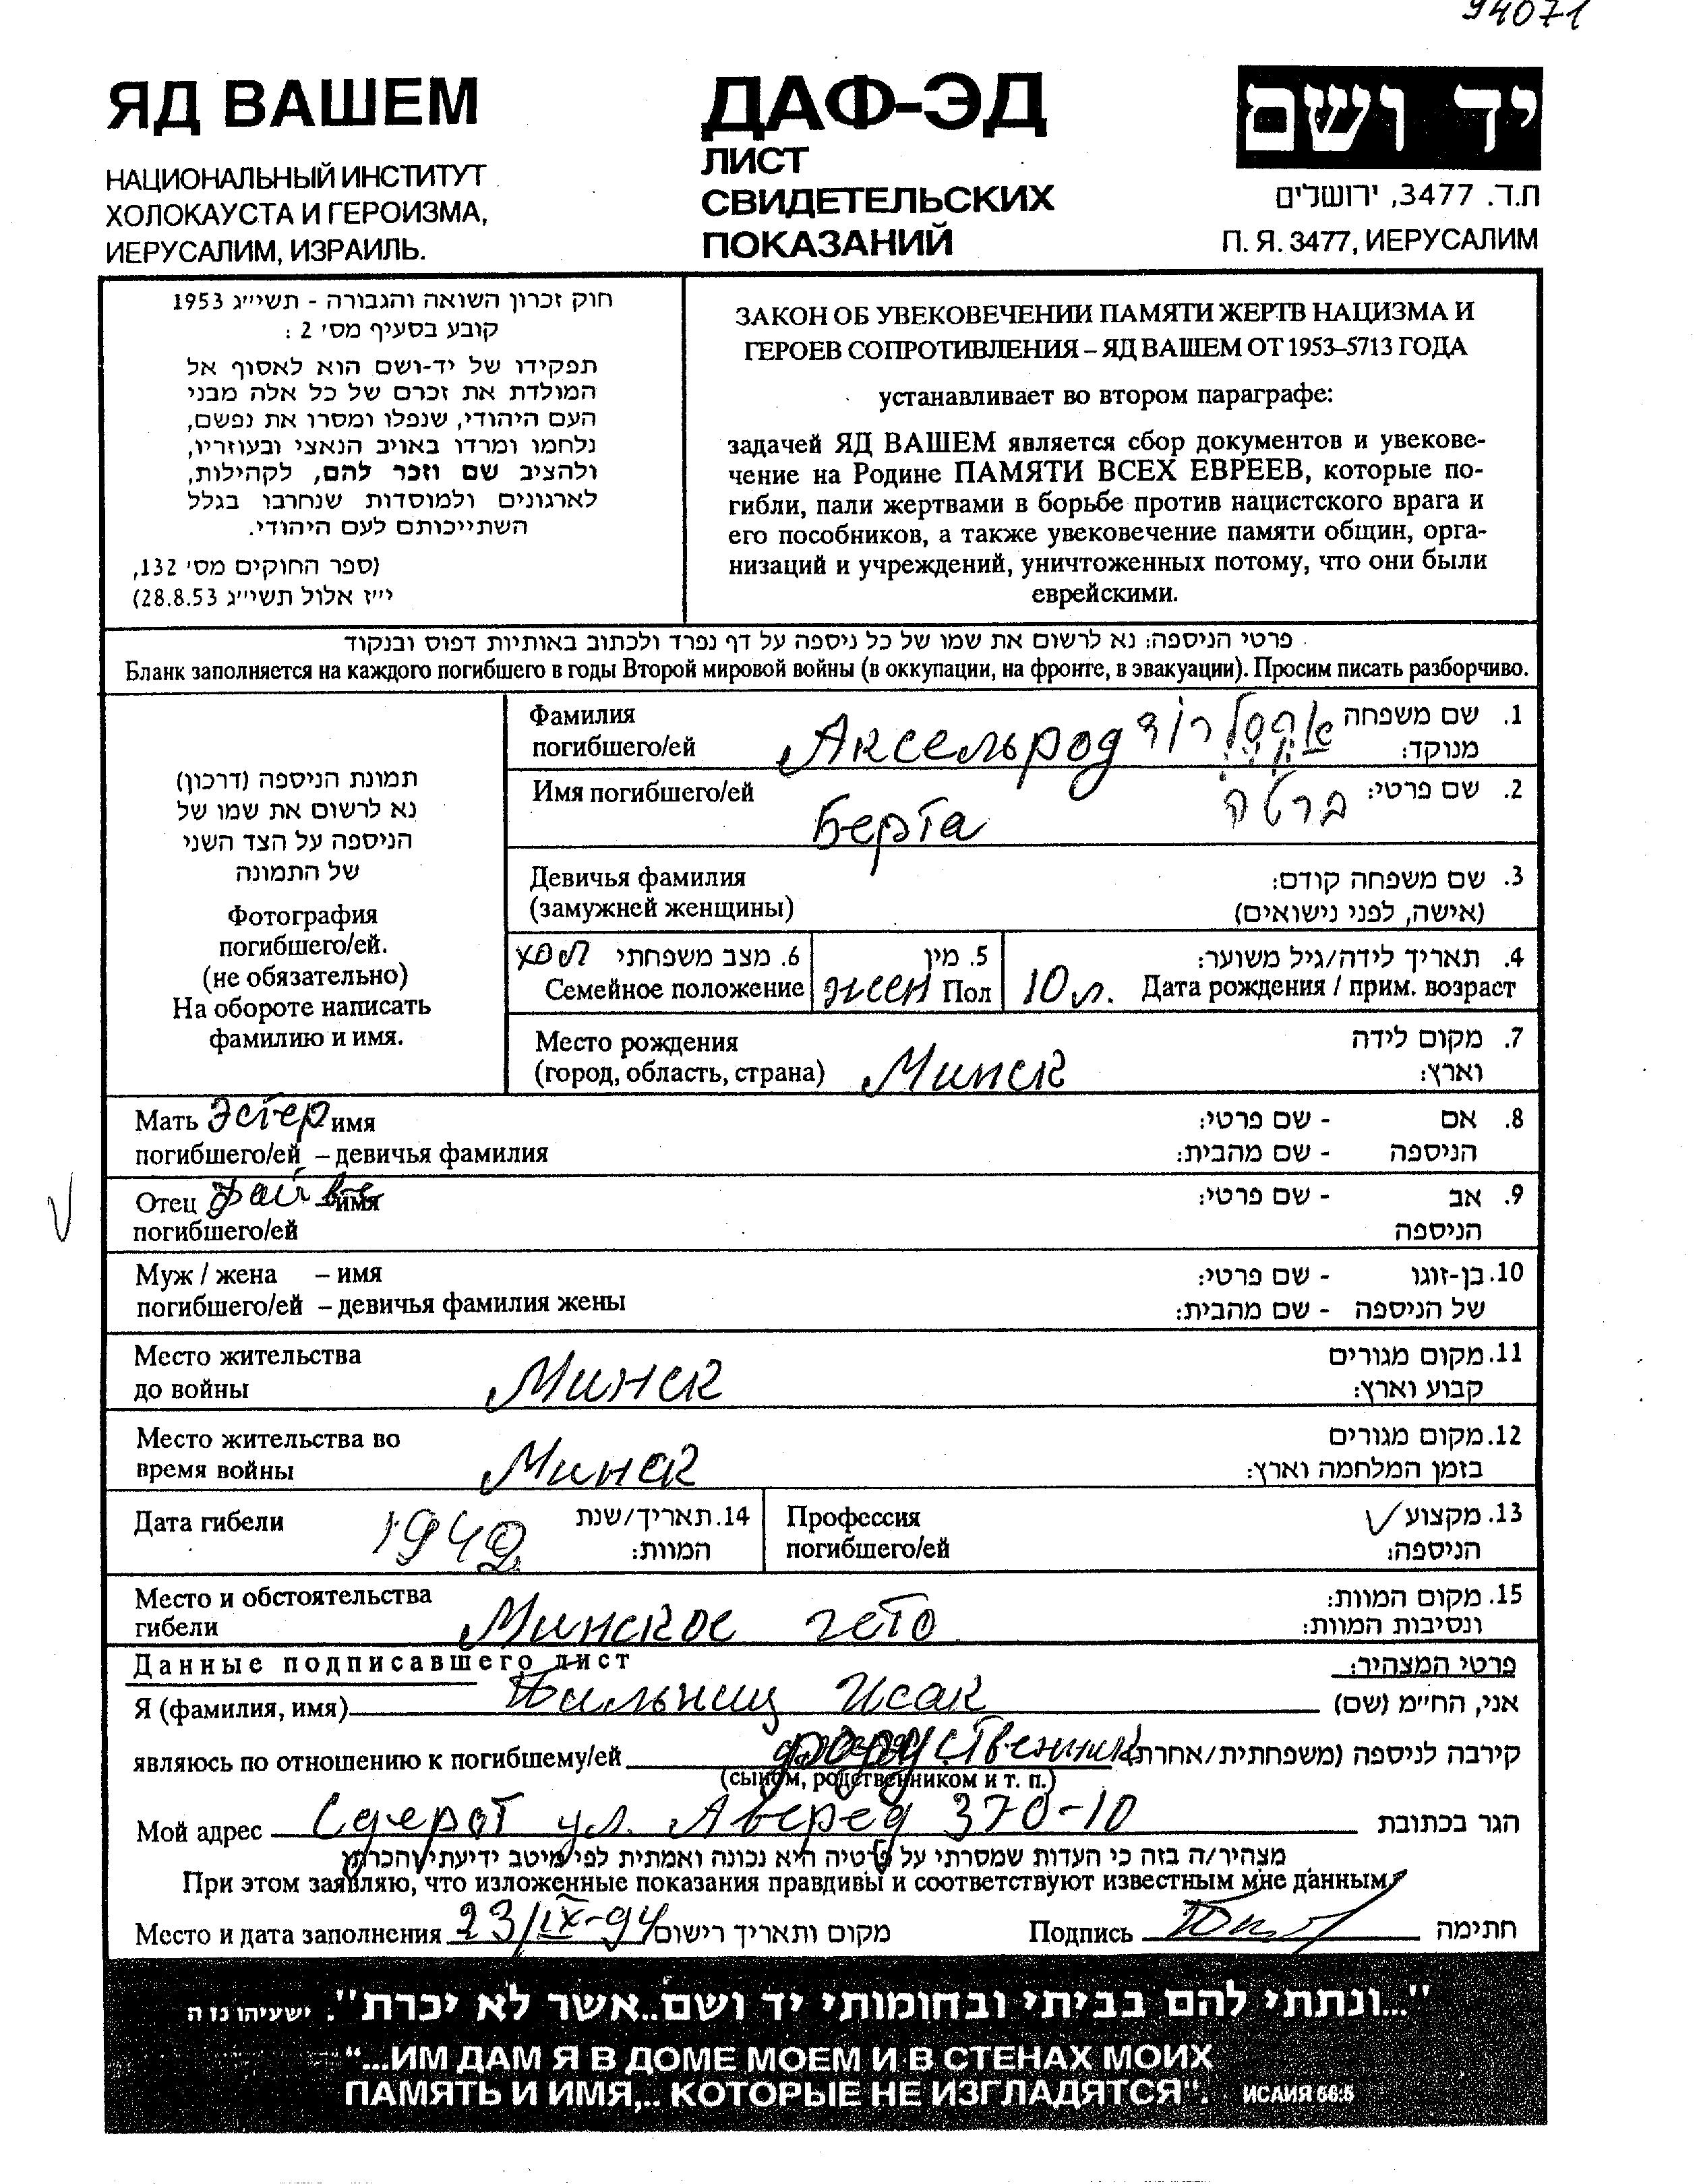 94071
ЯД ВАШЕМ
НАЦИОНАЛЬНЫЙ ИНСТИТУТ
ХОЛОКАУСТА И ГЕРОИЗМА,
ИЕРУСАЛИМ, ИЗРАИЛЬ.
ДАФ-ЭД
ЛИСТ
СВИДЕТЕЛЬСКИХ
ПОКАЗАНИЙ
יד ושם
ת.ד. 3477, ירושלים
П. Я. 3477, ИЕРУСАЛИМ
חוק זכרון השואה והגבורה - תשי״ג 1953
קובע בסעיף מס׳ 2 :
תפקידו של יד-ושם הוא לאסוף אל
המולדת את זכרם של כל אלה מבני
העם היהודי, שנפלו ומסרו את נפשם,
נלחמו ומרדו באויב הנאצי ובעוזריו,
ולהציב שם וזכר להם, לקהילות,
לארגונים ולמוסדות שנחרבו בגלל
השתייכותם לעם היהודי.
(ספר החוקים מס׳ 132,
י״ז אלול תשי״ג 28.8.53)
ЗАКОН ОБ УВЕКОВЕЧЕНИИ ПАМЯТИ ЖЕРТВ НАЦИЗМА И
ГЕРОЕВ СОПРОТИВЛЕНИЯ – ЯД ВАШЕМ ОТ 1953–5713 ГОДА
устанавливает во втором параграфе:
задачей ЯД ВАШЕМ является сбор документов и увекове-
чение на Родине ПАМЯТИ ВСЕХ ЕВРЕЕВ, которые по-
гибли, пали жертвами в борьбе против нацистского врага и
его пособников, а также увековечение памяти общин, орга-
низаций и учреждений, уничтоженных потому, что они были
еврейскими.
פרטי הניספה: נא לרשום את שמו של כל ניספה על דף נפרד ולכתוב באותיות דפוס ובנקוד
Бланк заполняется на каждого погибшего в годы Второй мировой войны (в оккупации, на фронте, в эвакуации). Просим писать разборчиво.
תמונת הניספה (דרכון)
נא לרשום את שמו של
הניספה על הצד השני
של התמונה
Фотография
погибшего/ей.
(не обязательно)
На обороте написать
фамилию и имя.
Фамилия Аксельрод אקסלרוד 1. שם משפחה
погибшего/ей מנוקד:
Имя погибшего/ей Берта ברטה 2. שם פרטי:
Девичья фамилия 3. שם משפחה קודם:
(замужней женщины) (אישה, לפני נישואים)
хол 6. מצב משפחתי 5. מין 4. תאריך לידה/גיל משוער:
Семейное положение жен Пол 10 л. Дата рождения / прим. возраст
Место рождения 7. מקום לידה
(город, область, страна) Минск וארץ:
Мать Эстер имя 8. אם - שם פרטי:
погибшего/ей – девичья фамилия הניספה - שם מהבית:
Отец Файвe – имя 9. אב - שם פרטי:
погибшего/ей הניספה
Муж / жена – имя 10. בן-זוגו - שם פרטי:
погибшего/ей – девичья фамилия жены של הניספה - שם מהבית:
Место жительства 11. מקום מגורים
до войны Минск קבוע וארץ:
Место жительства во 12. מקום מגורים
время войны Минск בזמן המלחמה וארץ:
Дата гибели 1942 14. תאריך/שנת Профессия 13. מקצוע
המוות: погибшего/ей הניספה:
Место и обстоятельства 15. מקום המוות:
гибели Минское гето ונסיבות המוות:
Данные подписавшего лист פרטי המצהיר:
Я (фамилия, имя) Исак אני, החי״מ (שם)
являюсь по отношению к погибшему/ей родственник קירבה לניספה (משפחתית/אחרת)
(сыном, родственником и т. п.)
Мой адрес Сдерот ул. Аверед 370-10 הגר בכתובת
מצהיר/ה בזה כי העדות שמסרתי על פרטיה היא נכונה ואמתית לפי מיטב ידיעתי והכרתי
При этом заявляю, что изложенные показания правдивы и соответствуют известным мне данным
Место и дата заполнения 23/IX-94 מקום ותאריך רישום Подпись חתימה
"...ונתתי להם בביתי ובחומותי יד ושם..אשר לא יכרת". ישעיהו נו ה
"...ИМ ДАМ Я В ДОМЕ МОЕМ И В СТЕНАХ МОИХ
ПАМЯТЬ И ИМЯ,.. КОТОРЫЕ НЕ ИЗГЛАДЯТСЯ". ИСАИЯ 56:5